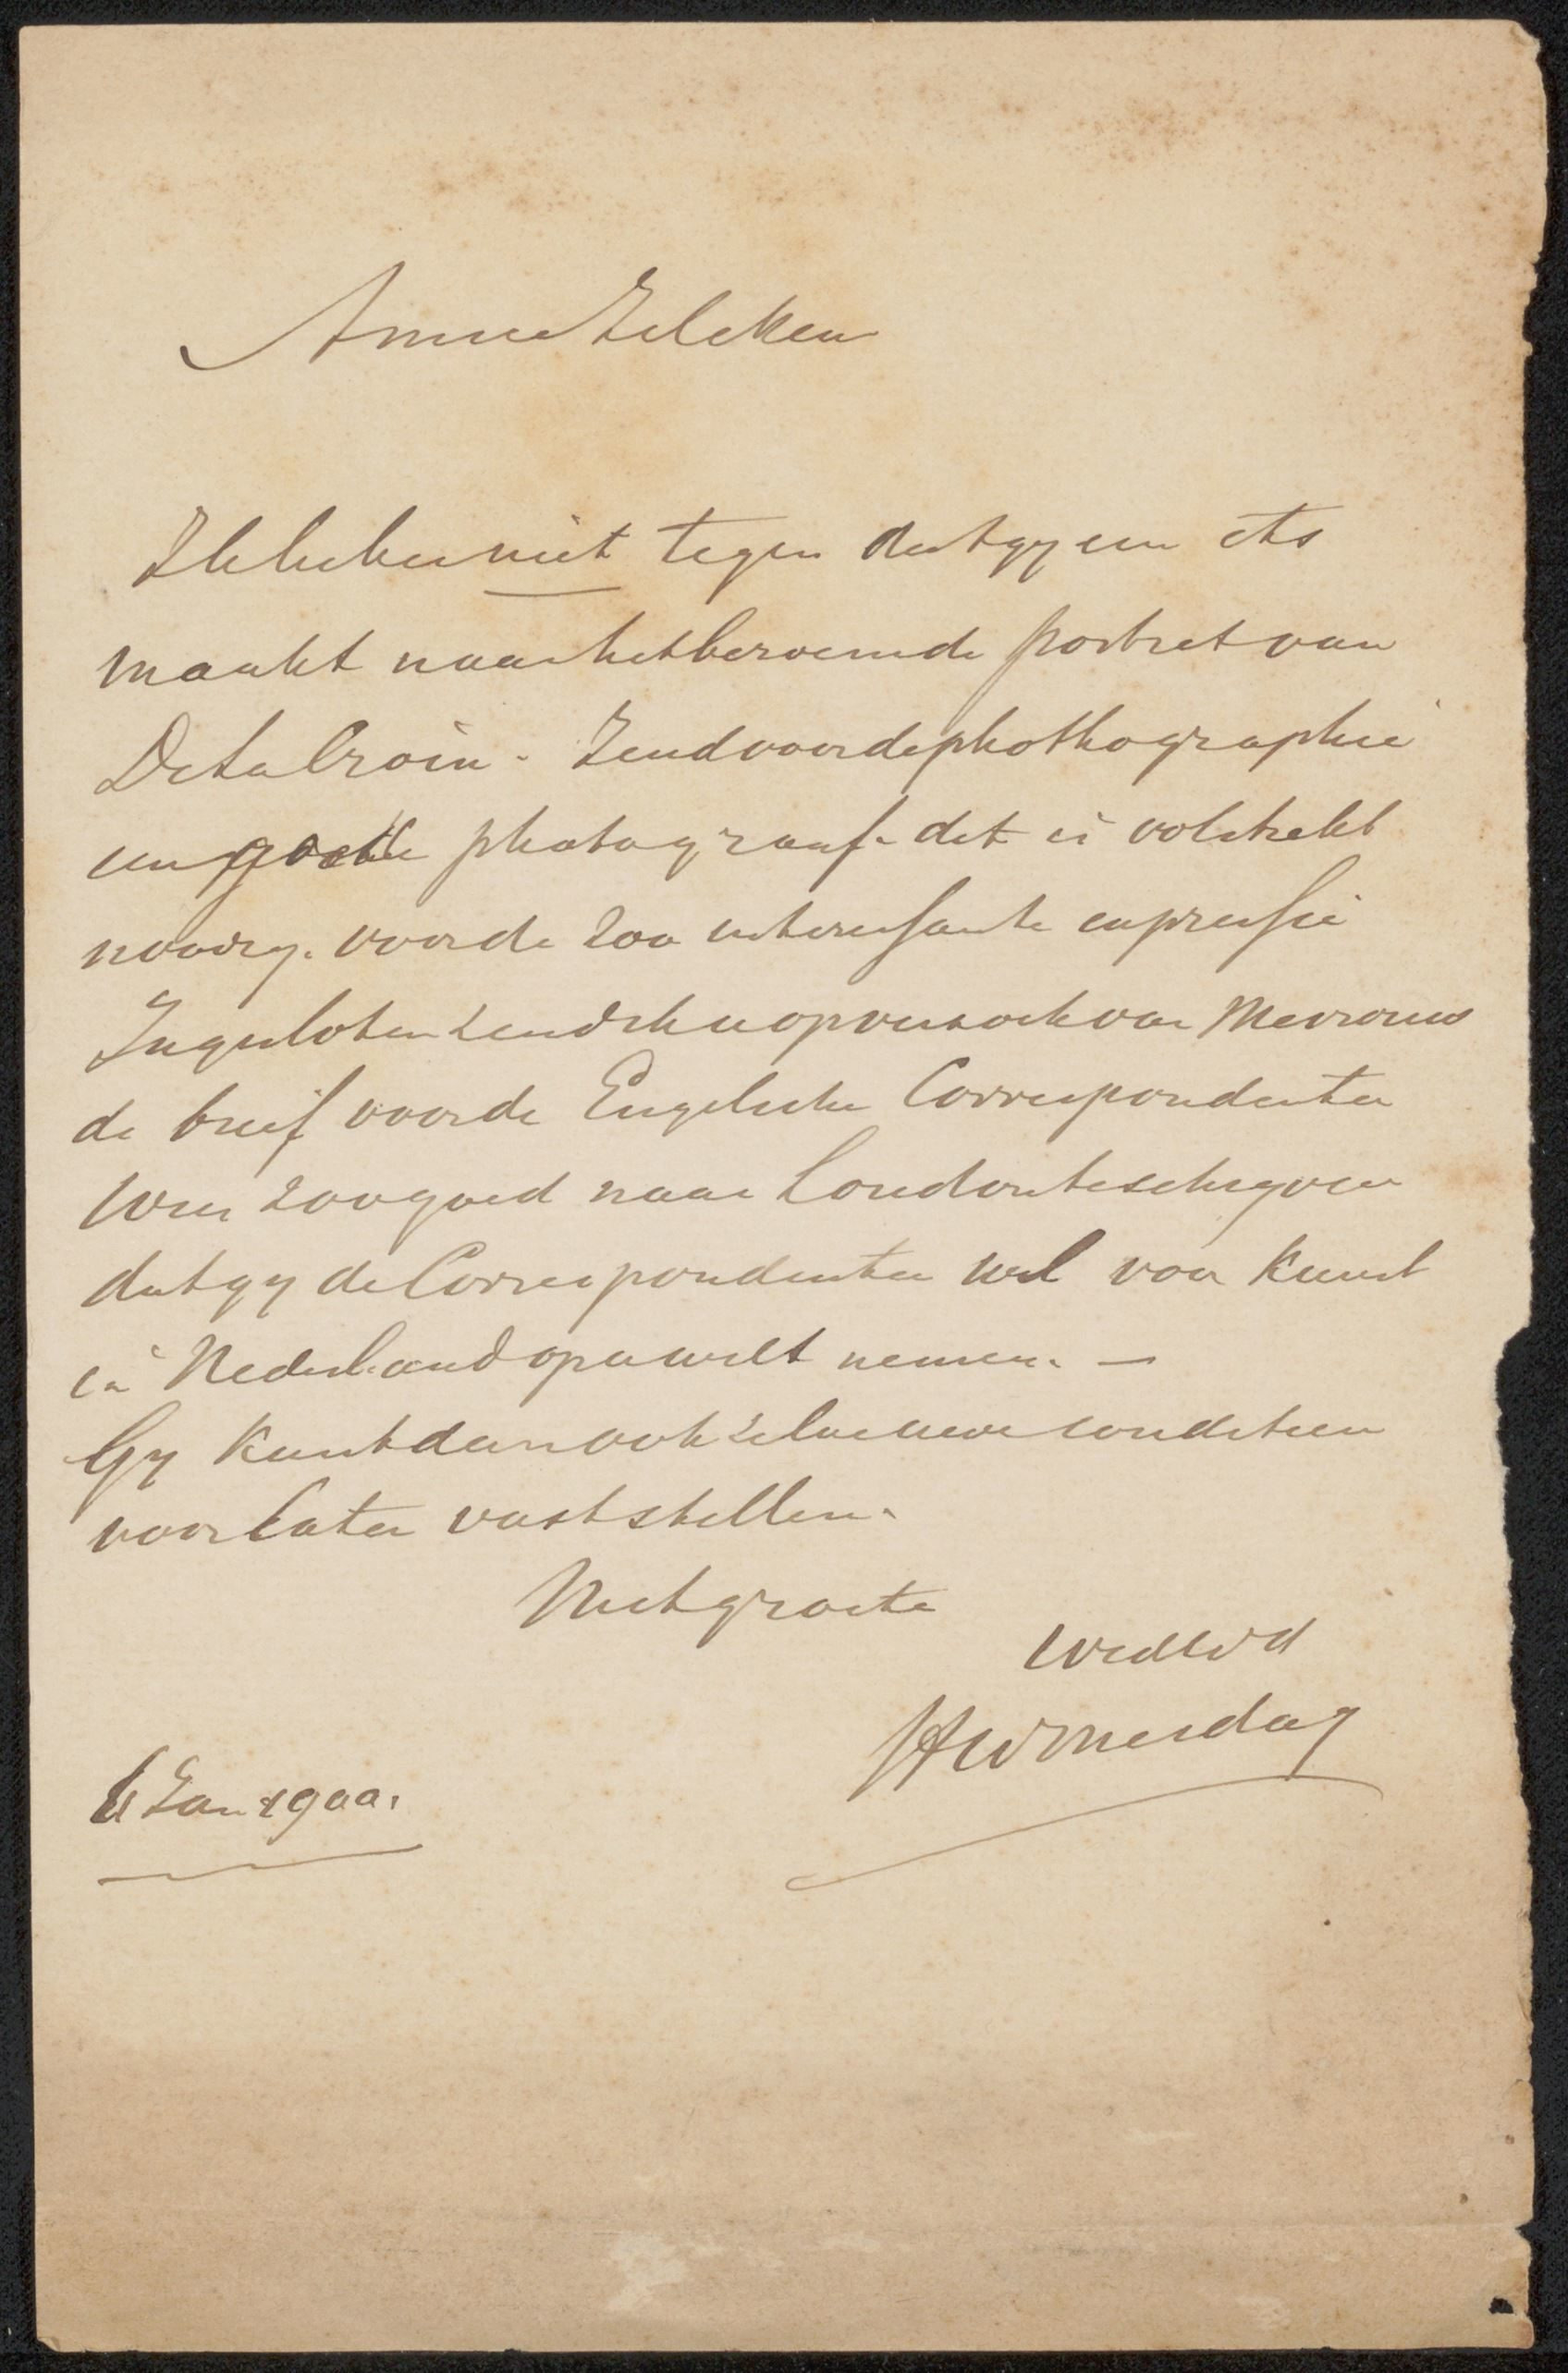 Amice Zilcken
Ik heb er niet tegen dat gy een ets
maakt naar het beroemde portret van
Delacroix - Zend voor de phothographie
een goede photograaf - dit is volstrekt
noodig. voor de zoo interessante expressie
Ingesloten zend ik u op verzoek van Mevrouw
de brief voor de Engelsche Correspondentie
Wees zoo goed naar London te schryven
dat gy de Correspondentie wel voor Kunst
in Nederland op u wilt nemen. —
Gy kunt dan ook zelve uwe condities
voor later vaststellen.
Met groete
HWMesdag
6 Jan 1900.